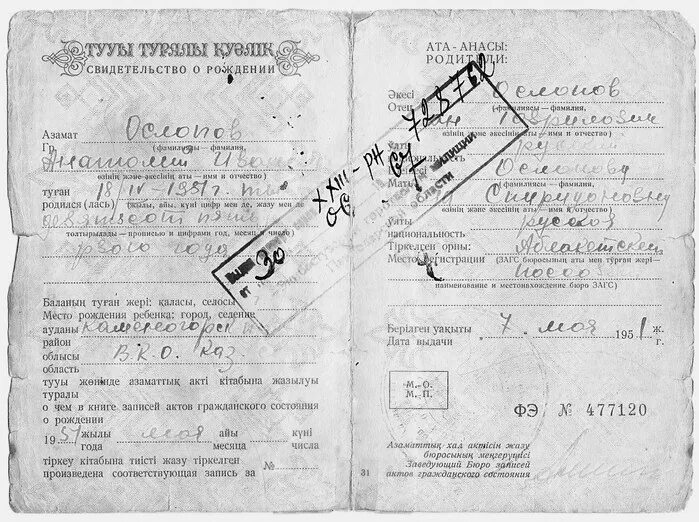 ТУУЫ ТУРАЛЫ КУӘЛІК
СВИДЕТЕЛЬСТВО О РОЖДЕНИИ
Азамат Ослопов
Гр. (фамилиясы – фамилия,
Анатолий
өзінің және әкесінің аты – имя и отчество)
туған 18 IV 1951
родился (лась) (жылы, айы, күні цифр мен де, жазу мен де
девятьсот пять
толтырылады – прописью и цифрами год, месяц и число)
первого года
Баланың туған жері: қаласы, селосы
Место рождения ребенка: город, селение
ауданы Каменогорск
район
облысы В.К.О. Каз.
область
тууы жөнінде азаматтық акті кітабына жазылуы
туралы
о чем в книге записей актов гражданского состояния
о рождении
1951 жылы мая айы күні
года месяца числа
тіркеу кітабына тиісті жазу тіркелген
произведена соответствующая запись за №
АТА-АНАСЫ:
РОДИТЕЛИ:
Әкесі Ослопов
Отец (фамилиясы – фамилия,
Гаврилович
өзінің және әкесінің аты – имя и отчество)
Ұлты русский
Ослопову
(фамилиясы – фамилия,
Спиридоновну
өзінің және әкесінің аты – имя и отчество)
Ұлты русская
национальность
Тіркелген орны: Аблакетский
Место регистрации (ЗАГС бюросының аты мен тұрған жері–
посов
наименование и местонахождение бюро ЗАГС)
Берілген уақыты 7 мая 1951 ж.
Дата выдачи г.
XXIII-РН 728762
от 30
милиции
области
М.О.
М.П.
ФЭ № 477120
Азаматтық хал актісін жазу
бюросының меңгерушісі
Заведующий Бюро записей
актов гражданского состояния
31